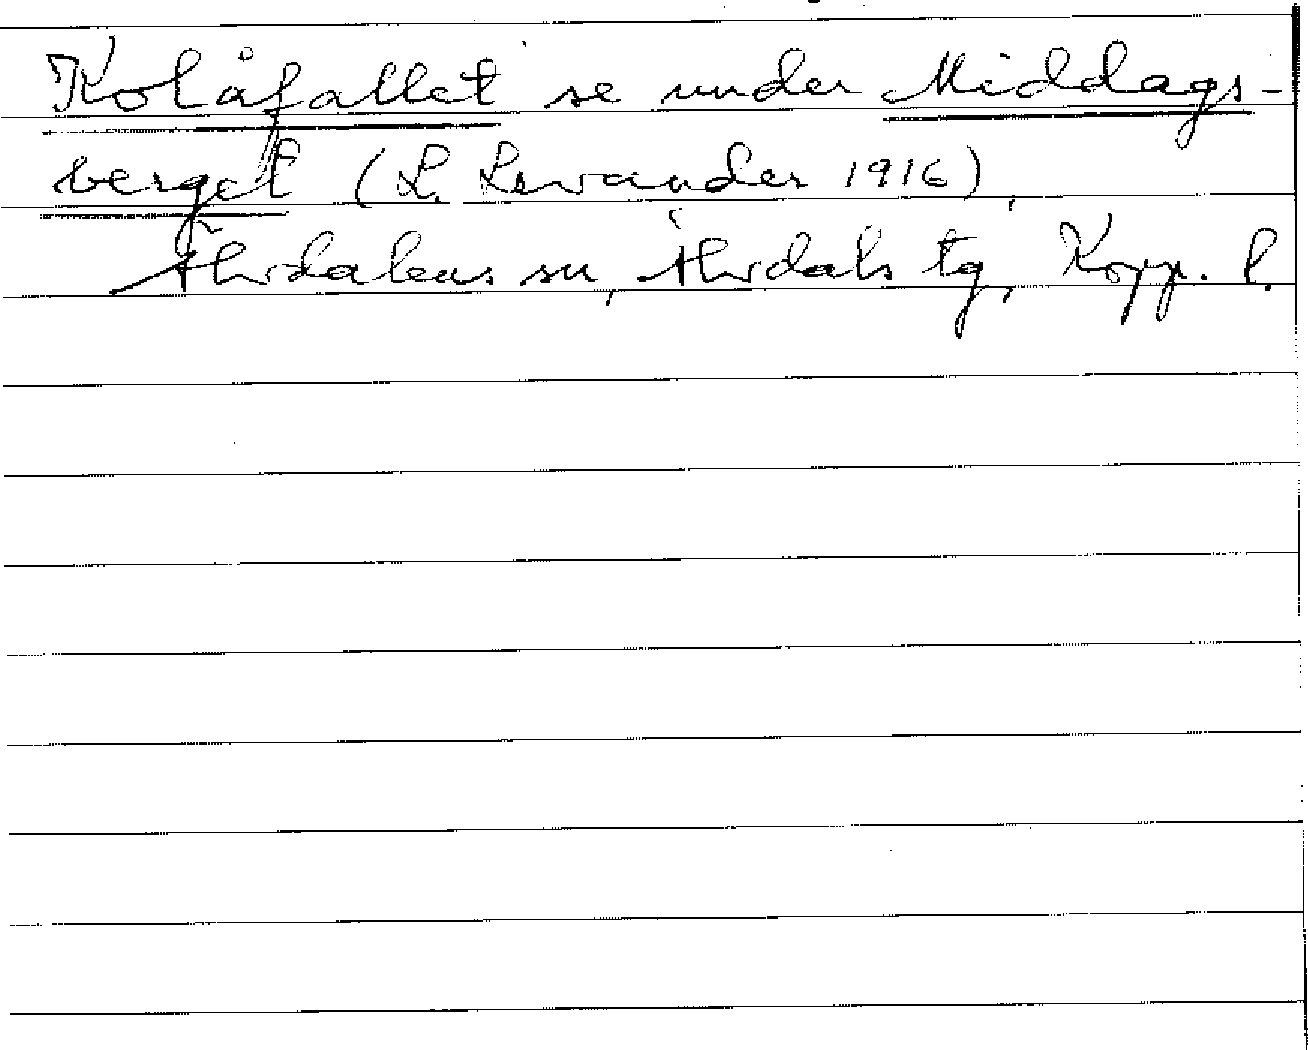 Kolåfallet se under Middags-
berget (L. Levander 1916),
Älvdalens sn, Älvdals tg, Kopp. l.